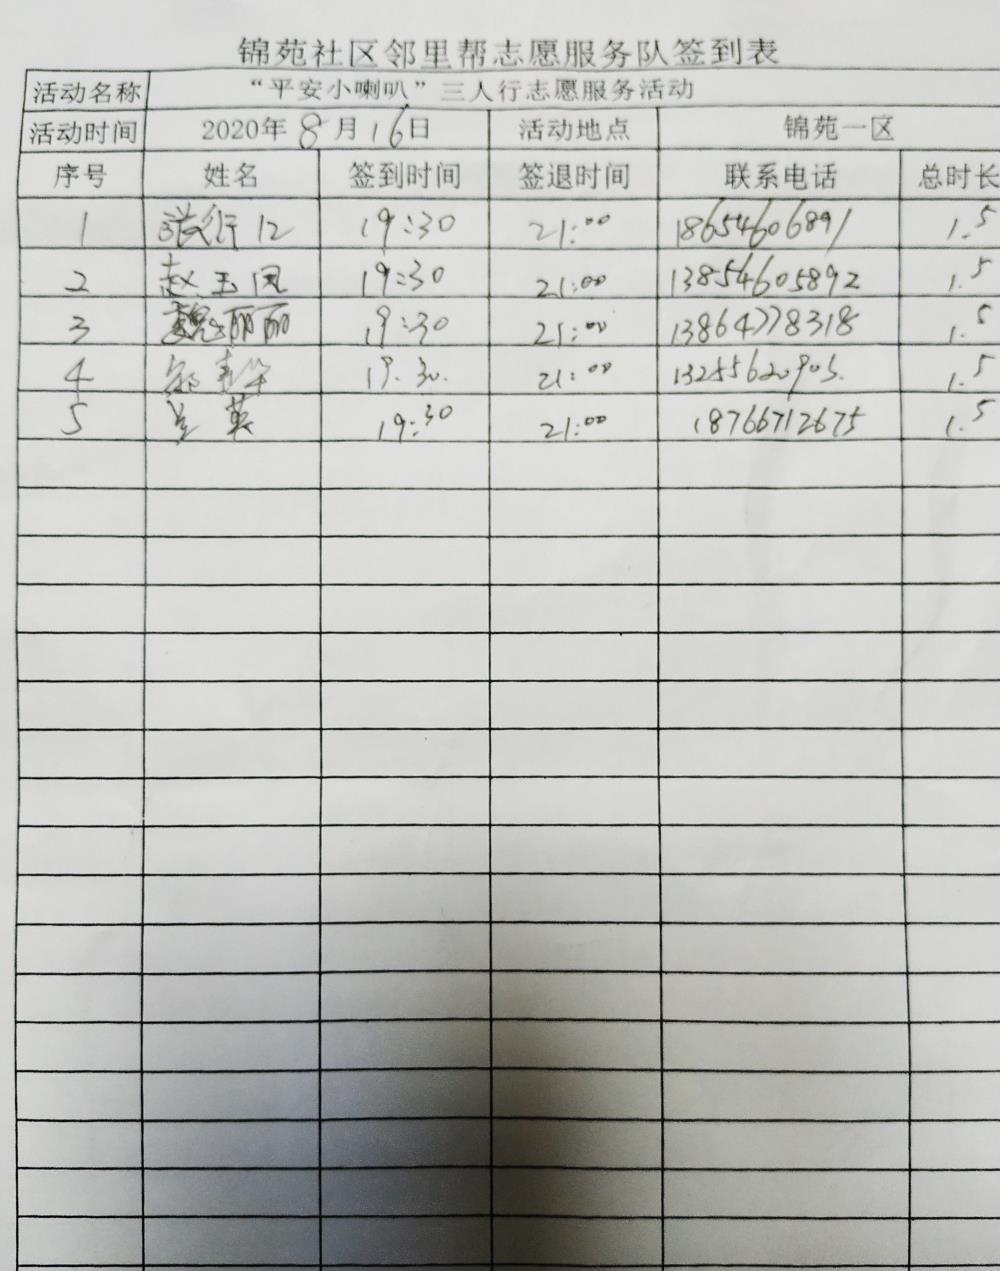 锦苑社区邻里帮志愿服务队签到表
活动名称 “平安小喇叭”三人行志愿服务活动
活动时间 2020年8月16日 活动地点 锦苑一区
序号 姓名 签到时间 签退时间 联系电话 总时长
1 张行江 19:30 21:00 18654606891 1.5
2 赵玉凤 19:30 21:00 13854605892 1.5
3 魏丽丽 19:30 21:00 13864778318 1.5
4 19.30. 21:00 13255620903. 1.5
5 英 19:30 21:00 18766712675 1.5